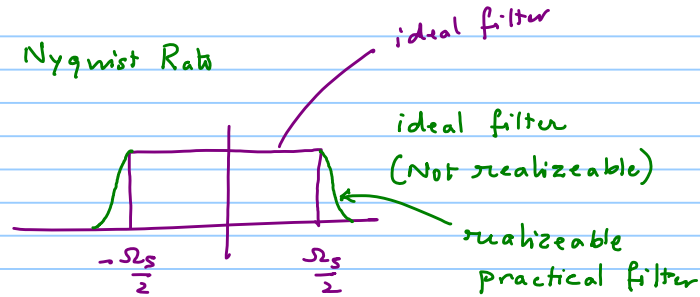 ideal filter
Nyquist Rate
ideal filter
(Not realizeable)
realizeable
practical filter
-Ωs/2
Ωs/2